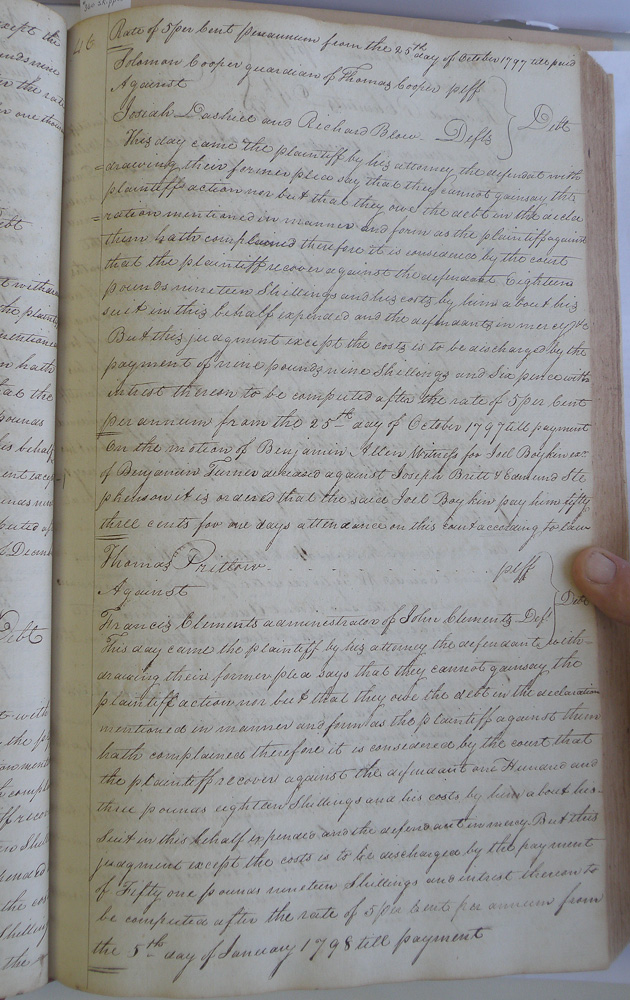 46
Rate of 5 per Cent per annum from the 25th day of October 1797 till paid
Solomon Cooper guardian of Thomas Cooper plff
Against
Debt
Josiah Lashiee and Richard Blow Defts
This day came the plaintiff by his attorney the defendat with
=drawing their former plea say that they cannot gainsay the
plaintiff action nor but that they owe the debt in the decla
=ration mentioned in manner and form as the plaintiff against
them hath complained therefore it is considered by the court
that the plaintiff recover against the defendant Eighteen
pounds nineteen Shillings and his costs by him about his
suit in this behalf expended and the defendants in mercy &c
But this judgment except the costs is to be discharged by the
payment of nine pounds nine Shillings and Six pence with
intrest thereon to be computed after the rate of 5 per Cent
per annum from the 25th day of October 1797 till payment
On the motion of Benjamin Allen Witness for Joel Boykin exr
of Benjamin Turner deceased against Joseph Britt & Edmund Ste
phenson it is ordered that the said Joel Boykin pay him fifty
three cents for one days attendance on this court according to law
Thomas Pretlow . . . . . . . . plff
Against
Debt
Francis Clements administrator of John Clements Deft
This day came the plaintiff by his attorney the defendants with=
drawing their former plea says that they cannot gainsay the
plaintiff action nor but that they owe the debt in the declaration
mentioned in manner and form as the plaintiff against them
hath complained therefore it is considered by the court that
the plaintiff recover against the defendant one Hundred and
three pounds eighteen Shillings and his costs by him about his
suit in this behalf expended and the defendant in mercy. But this
judgment except the costs is to be discharged by the payment
of Fifty one pounds nineteen Shillings and interest thereon to
be computed after the rate of 5 per Cent per annum from
the 5th day of January 1798 till payment